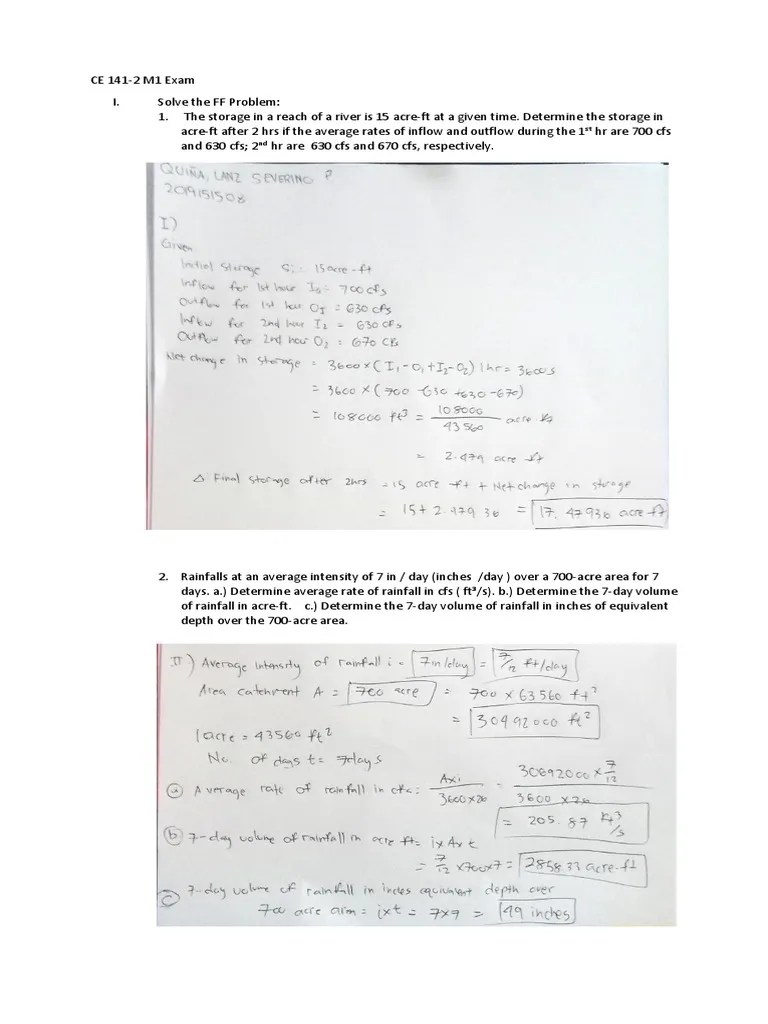 CE 141-2 M1 Exam
I. Solve the FF Problem:
1. The storage in a reach of a river is 15 acre-ft at a given time. Determine the storage in
acre-ft after 2 hrs if the average rates of inflow and outflow during the 1st hr are 700 cfs
and 630 cfs; 2nd hr are 630 cfs and 670 cfs, respectively.
QUIÑA, LANZ SEVERINO P
2019151508
I)
Given
Initial Storage Si = 15 acre-ft
Inflow for 1st hour = 700 cfs
Outflow for 1st hour = 630 cfs
Inflow for 2nd hour I2 = 630 cfs
Outflow for 2nd hour O2 = 670 cfs
Net change in storage = 3600 x (I1 - O1 + I2 - O2) 1 hr = 3600s
= 3600 x (700 - 630 + 630 - 670)
= 108000 ft3 = 108000 / 43560 acre ft
= 2.479 acre ft
Δ Final storage after 2hrs = 15 acre ft + Net change in storage
= 15 + 2.47936 = 17.47936 acre-ft
2. Rainfalls at an average intensity of 7 in / day (inches /day ) over a 700-acre area for 7
days. a.) Determine average rate of rainfall in cfs ( ft³/s). b.) Determine the 7-day volume
of rainfall in acre-ft. c.) Determine the 7-day volume of rainfall in inches of equivalent
depth over the 700-acre area.
II) Average Intensity of rainfall i = 7in/day = 7/12 ft/day
Area catchment A = 700 acre = 700 x 63560 ft2
= 30492000 ft2
1 acre = 43560 ft2
No. of days t = 7days
a Average rate of rainfall in = Axi / 3600x = x 7/12 / 3600 x
= 205.87 /s
b 7-day volume of rainfall in acre ft = i x A x t
= 7/12 x700x7 = 2858.33 acre-ft
c 7-day volume of rainfall in inches equivalent depth over
700 acre = ixt = 7x7 = 49 inches